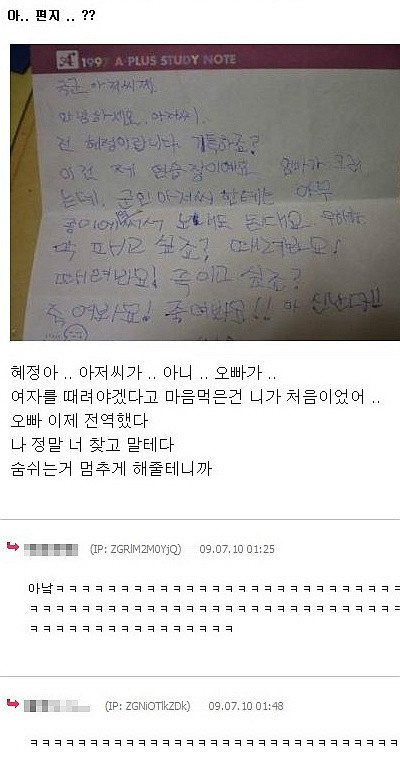 아.. 편지 .. ??
A+ 1997 A PLUS STUDY NOTE
국군 아저씨께
안녕하세요. 아저씨.
전 혜정이랍니다. 기특하죠?
이건 제 연습장이에요 엄마가 그러
는데, 군인 아저씨 한테는 아무
종이에 써서 보내도 된대요.
막 패고 싶죠? 때려봐요!
때려봐요! 죽이고 싶죠?
죽여봐요! 죽여봐요!! 아 신난다!!
혜정아 .. 아저씨가 .. 아니 .. 오빠가 ..
여자를 때려야겠다고 마음먹은건 니가 처음이었어 ..
오빠 이제 전역했다
나 정말 너 찾고 말테다
숨쉬는거 멈추게 해줄테니까
(IP: ZGRlM2M0YjQ) 09.07.10 01:25
아낰ㅋㅋㅋㅋㅋㅋㅋㅋㅋㅋㅋㅋㅋㅋㅋㅋㅋㅋㅋㅋㅋㅋㅋㅋㅋ
ㅋㅋㅋㅋㅋㅋㅋㅋㅋㅋㅋㅋㅋㅋㅋㅋㅋㅋㅋㅋㅋㅋㅋㅋㅋㅋㅋ
ㅋㅋㅋㅋㅋㅋㅋㅋㅋㅋㅋㅋㅋㅋㅋㅋ
(IP: ZGNiOTlkZDk) 09.07.10 01:48
ㅋㅋㅋㅋㅋㅋㅋㅋㅋㅋㅋㅋㅋㅋㅋㅋㅋㅋㅋㅋㅋㅋㅋㅋㅋㅋㅋ